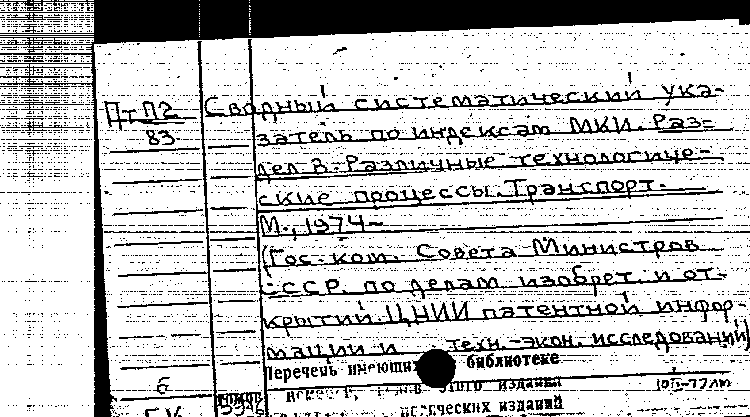 ПтП2 Сводный систематический ука-
83 затель по индексам МКИ. Раз-
дел В. Различные технологиче-
ские процессы. Транспорт.
М., 1974-
(Гос. ком. Совета Министров
СССР по делам изобрет. и от-
крытий ЦНИИ патентной инфор-
мации и техн.-экон. исследований)
Перечень имеющих библиотеке
б этого издания
ических изданий